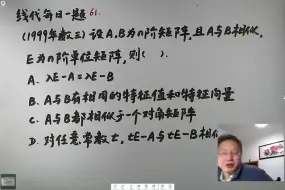 线代每日一题 61.
(1999年数三) 设A,B为n阶矩阵,且A与B相似,
E为n阶单位矩阵,则( ).
A. λE-A=λE-B
B. A与B有相同的特征值和特征向量
C. A与B都相似于一个对角矩阵
D. 对任意常数t, tE-A与tE-B相似